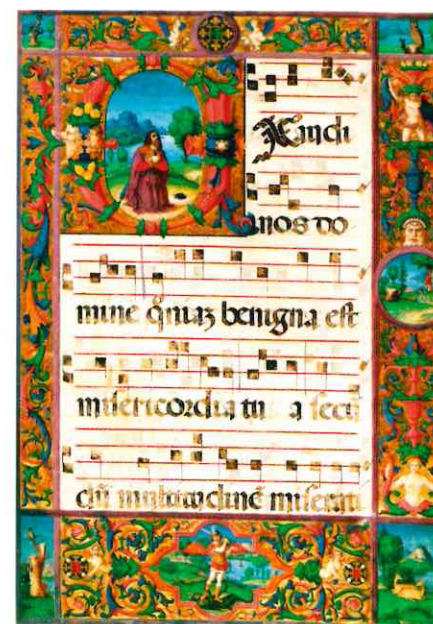 EXaudi
nos do
mine q̃niaz benigna est
misericordia tu a secũ
dũ multitudinẽ miserati